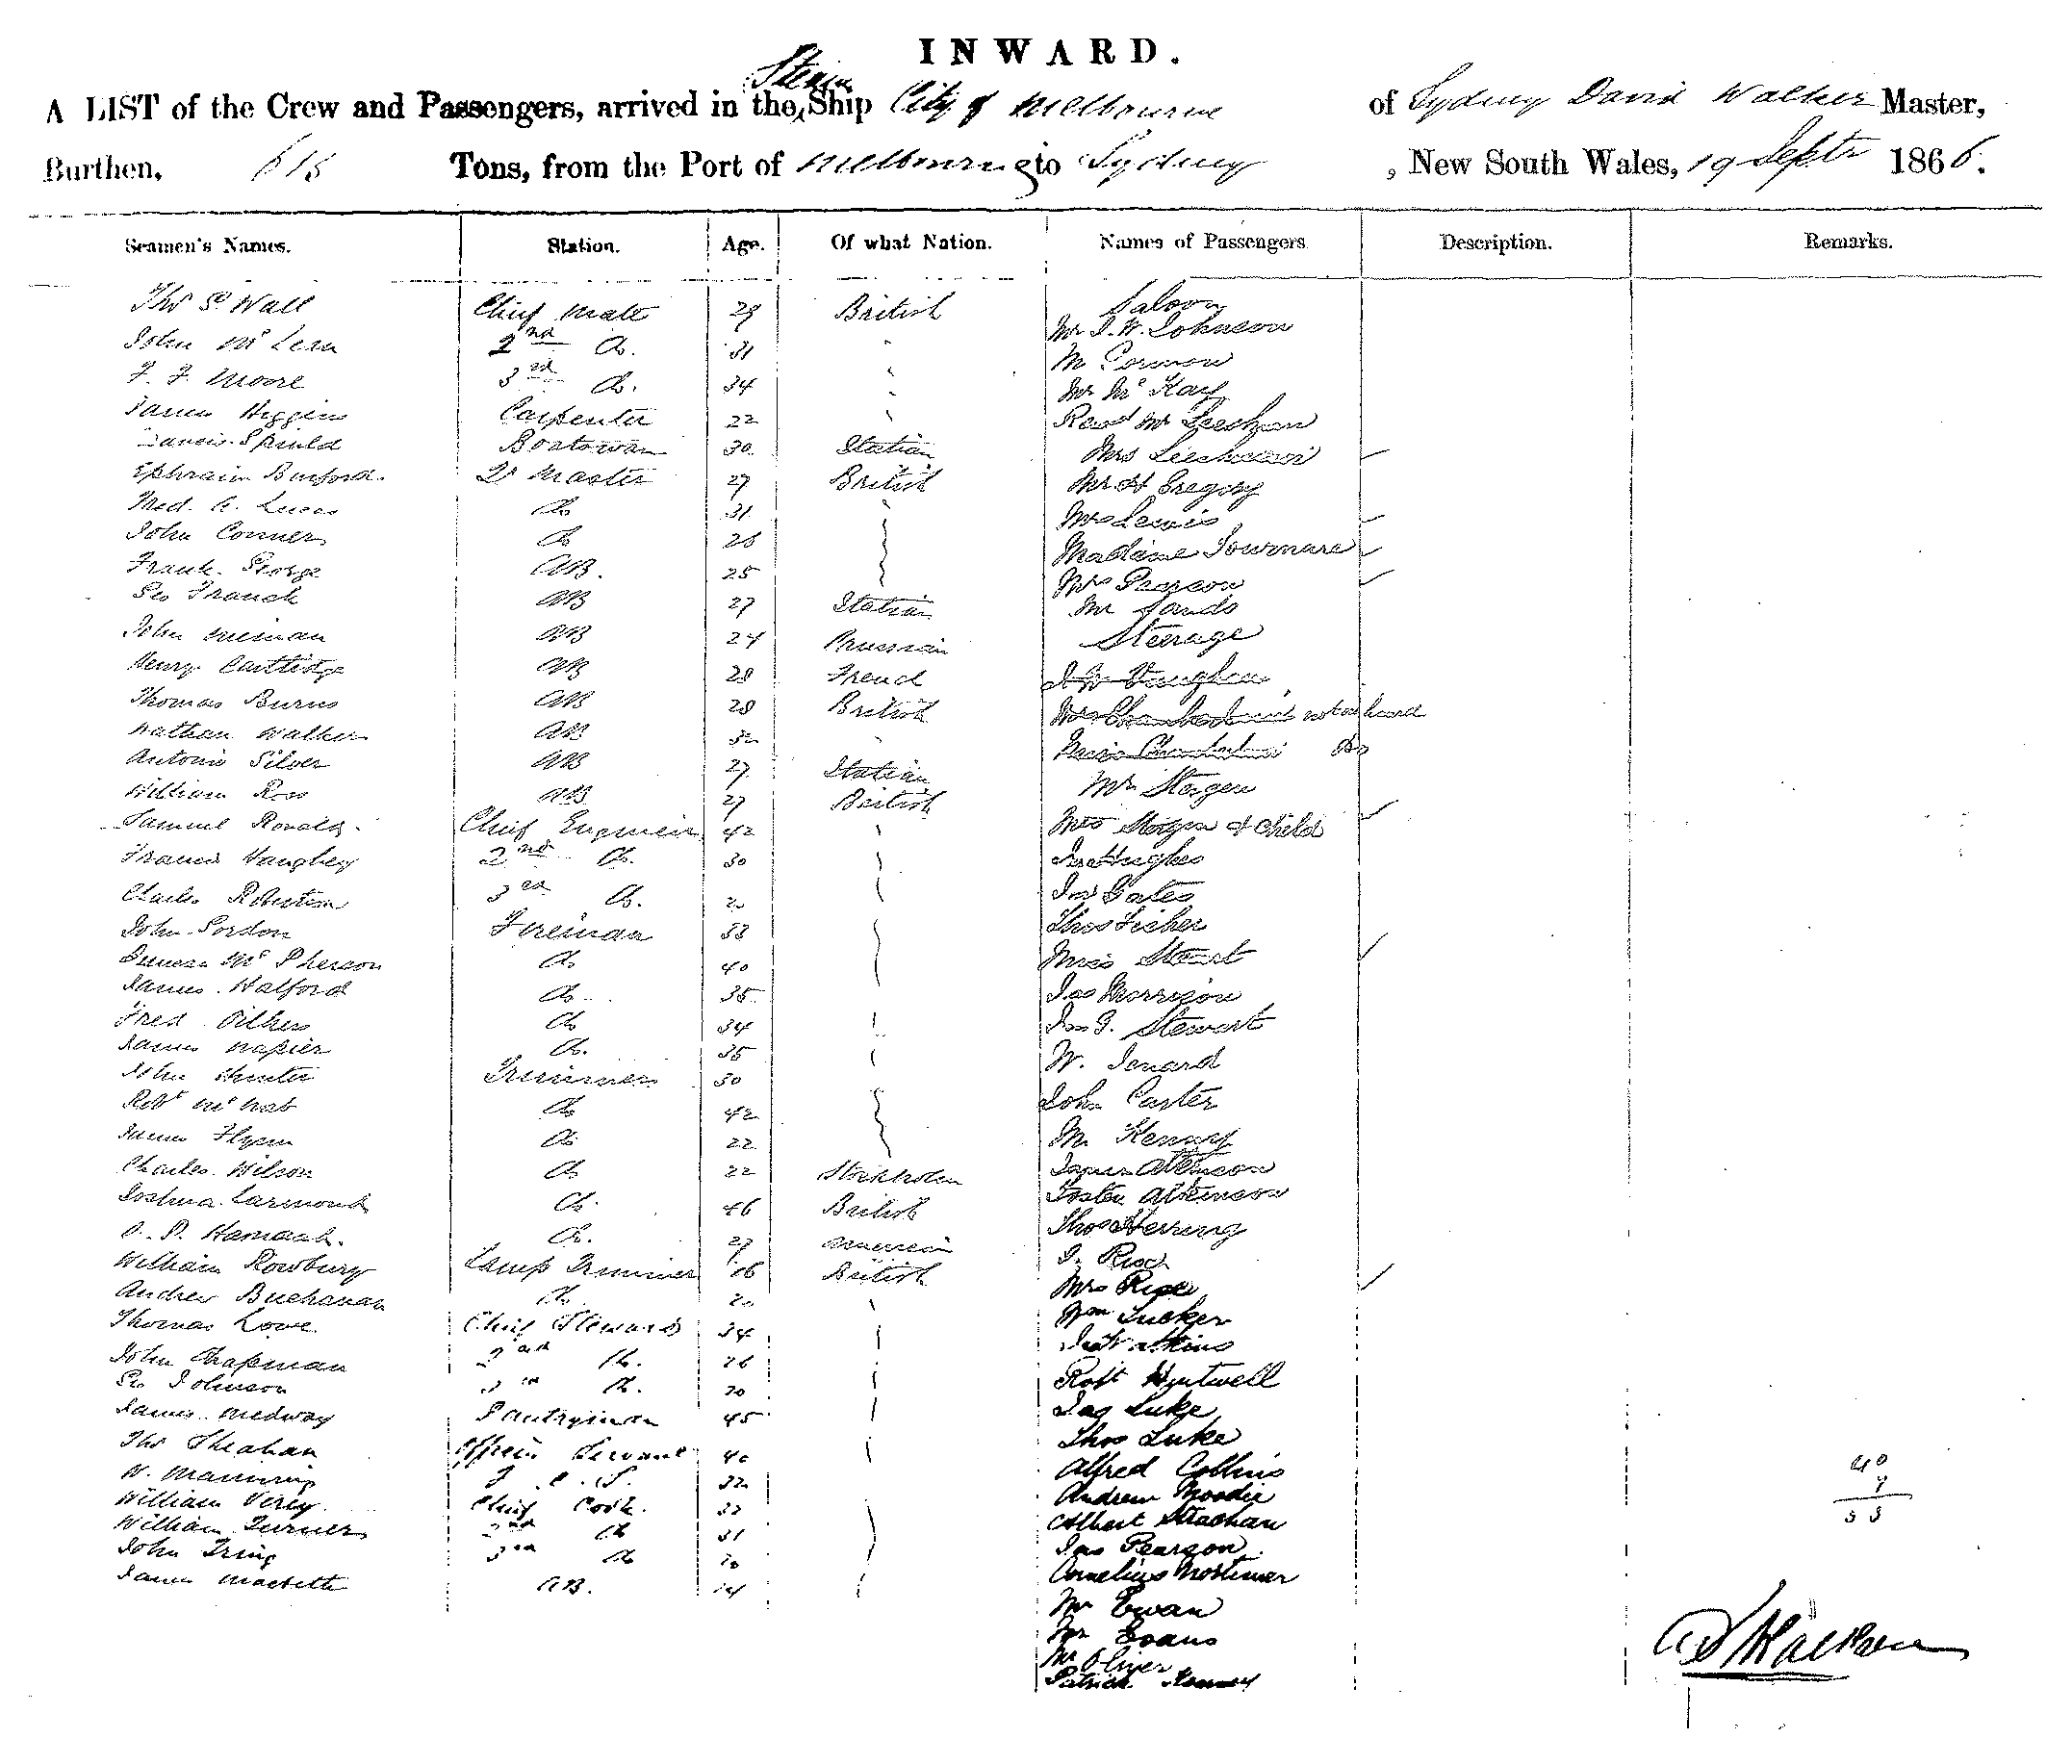 INWARD.
Steam
A LIST of the Crew and Passengers, arrived in the Ship City of Melbourne of Sydney David Walker Master,
Burthen, 615 Tons, from the Port of Melbourne to Sydney, New South Wales, 19 Septr 1866.
Seamen's Names. Station. Age. Of what Nation. Names of Passengers Description. Remarks.
Saloon
Thos Wall Chief Mate 29 British Mr J. W. Johnson
John McLean 2nd Do. 31 " M Cormon
F. F. Moore 3rd Do. 34 " Mr McKay
James Higgins Carpenter 22 " Revd Mr Leeshman
Boatswan 30 Italian Mrs Leeshman
Ephraim Burford Qr Master 27 British Mr H Gregory
Fred. C. Lucas Do 31 Mrs Lewis
John Conner Do 26 Madame Tournare
Frank George AB. 25 Mrs Pearson
Geo Franck AB 27 Italian Mr Sands
Steerage
John Nieman AB 24 Prussian J W Vaughan
Henry Cartlidge AB 28 French Mrs not on board
Thomas Burns AB 28 British Miss Do
Nathan Walker AB 32 Mr Steigen
Antonio Silver AB 27 Italian Mrs Steigen & Child
William Ross AB 27 British Jno Hughes
Samuel Ronald Chief Engineer 42 Jno Gates
Francis Haughey 2nd Do. 30 Thos Fisher
Charles Robertson 3rd Do. Miss Stewart
John Gordon Fireman 33 Jas Morrison
Duncan McPherson Do 40 Jno G. Stewart
James Halford Do 35 W. Isnard
Fred Pilkers Do 34 John Carter
James Napier Do. 35 M. Kenny
John Hunter Trimmer 30 James Atkinson
Robt McNab Do 42 Foster Atkinson
James Flynn Do 22 Thos Herring
Charles Wilson Do 22 Stockholm J. Rise
Joshua Larmouth Do. 46 British Mrs Rise
Do. 27 American Wm Tucker
William Rowbury Lamp Trimmer 16 British Watkins
Andrew Buchanan Do. 20 Robt Hartwell
Thomas Lowe Chief Steward 34 Jas Luke
John Chapman 2nd Do. 26 Thos Luke
Geo Johnson 3rd Do. 20 Alfred Collins
James Medway Pantryman 45 Andrew Moodie
Thos Sheahan Officers Servant 40 Albert Strachan
W. Manning F. C. S. 32 Jas Pearson
William Verey Chief Cook. 32 Cornelius Mortimer
William Turner 2nd Do 31 Mr Ewan
John Tring 3rd Do 20 Mr Evans
James Macbeth AB. Mr Oliver
Patrick